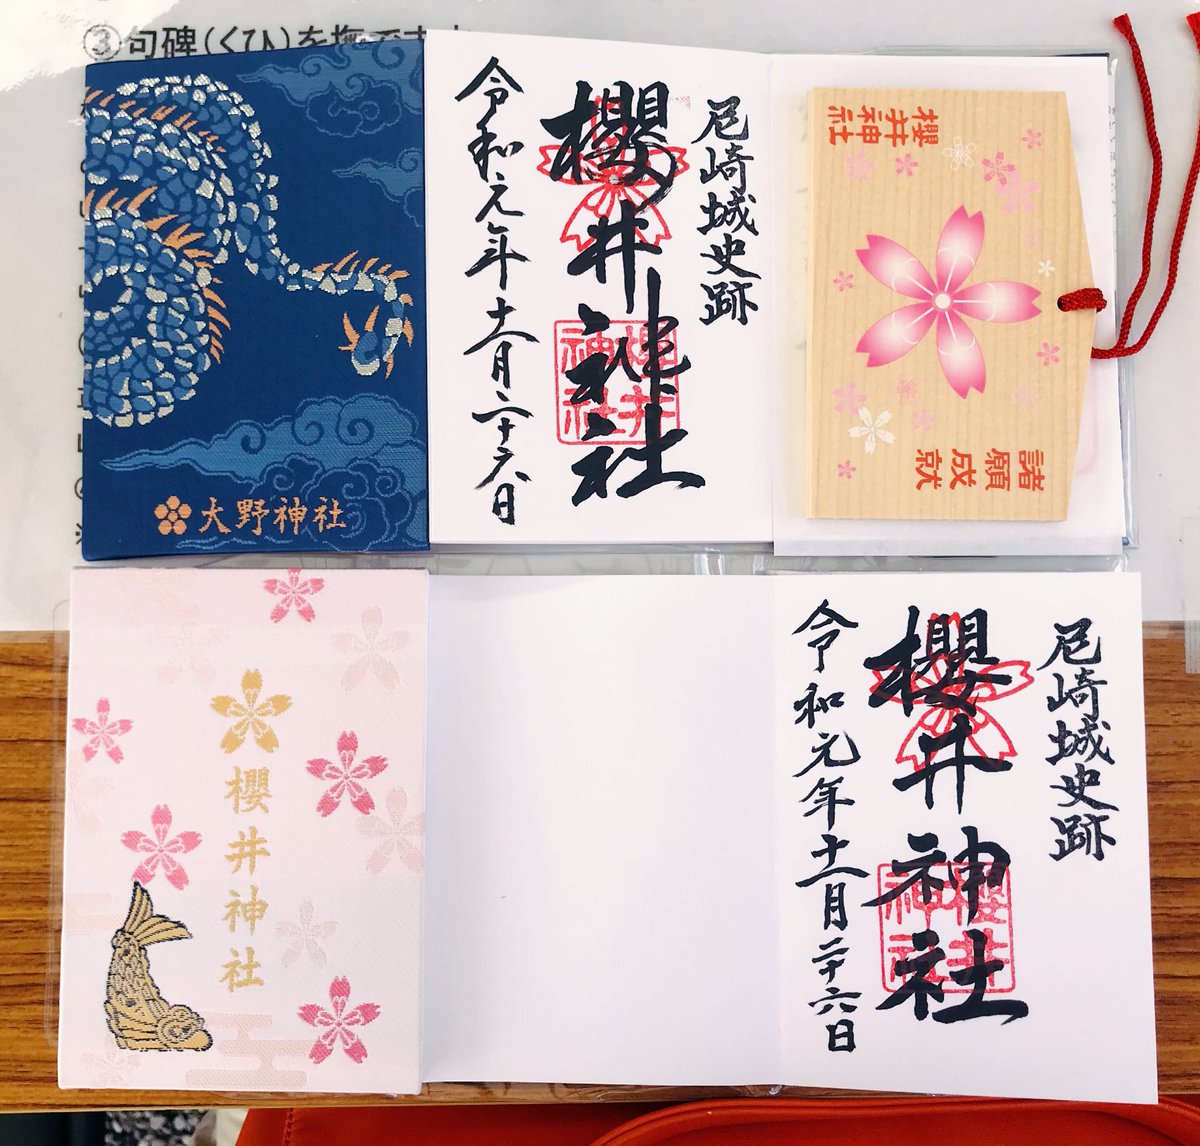 ③句碑(くひ)を撫で
大野神社
尼崎城史跡
櫻井神社
櫻井神社
令和元年十一月二十六日
櫻井神社
諸願成就
櫻井神社
尼崎城史跡
櫻井神社
櫻井神社
令和元年十一月二十六日